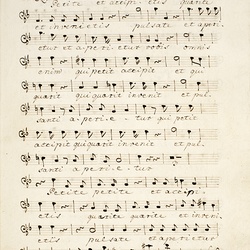 Petite et accipi etis quærite
et invenietis pulsate et aperi
etur et aperietur vobis omnis
enim qui petit accipit et qui
quærit qui quærit invenit et pul
santi aperie tur qui petit
accipit qui quærit invenit et pul
santi aperie tur
Petite petite et accipi
etis quærite quærite et inveni
etis pulsate et aperietur